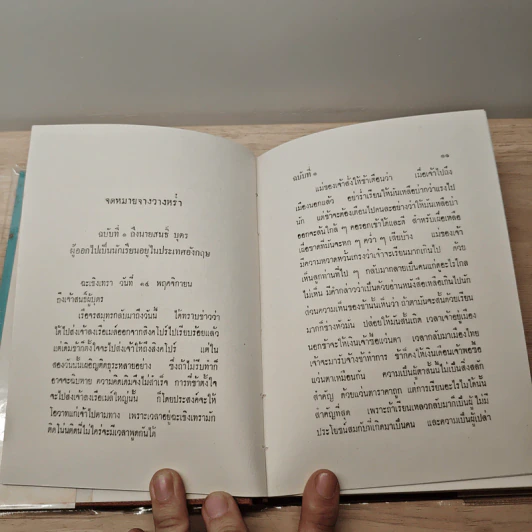 จดหมายจางวางหร่ำ
ฉบับที่ ๑ ถึงนายสนธิ์ บุตร
ผู้ออกไปเป็นนักเรียนอยู่ในประเทศอังกฤษ
ฉะเชิงเทรา วันที่ ๑๔ พฤศจิกายน
ถึงเจ้าสนธิ์ผู้บุตร
เรือรจสมุทรกลับมาถึงวันนี้ ได้ทราบข่าวว่า
ได้ไปส่งเจ้าลงเรือเมล์ออกจากสิงคโปร์ไปเรียบร้อยแล้ว
แต่เดิมข้าก็ตั้งใจจะไปส่งเจ้าให้ถึงสิงคโปร์ แต่ใน
สองวันนั้นเผอิญติดธุระหลายอย่าง ซึ่งถ้าไม่รีบทำก็
อาจจะฉิบหาย ความคิดเดิมจึงไม่สำเร็จ การที่ข้าตั้งใจ
จะไปส่งเจ้าลงเรือเมล์ใหญ่นั้น ก็โดยประสงค์จะให้
โอวาทแก่เจ้าไปตามทาง เพราะเวลาอยู่ฉะเชิงเทรามัก
ติดโน่นติดนี่ไม่ใคร่จะมีเวลาพูดกันได้
๑๑
ฉบับที่ ๑
แม่ของเจ้าสั่งให้ข้าเตือนว่า เมื่อเจ้าไปถึง
เมืองนอกแล้ว อย่าร่ำเรียนให้มันเหลือบ่ากว่าแรงไป
นัก แต่ข้าจะต้องเตือนไปคนละอย่างว่าให้มันเหลือบ่า
มีความหวาดหวั่นเกรงว่าเจ้าจะเรียนมากเกินไป ด้วย
เห็นลูกท่านที่ไป ๆ กลับมากลายเป็นคนแก่อะไรไกล
ไม่เห็น มีคำกล่าวว่าเป็นด้วยอ่านหนังสือเหลือเกินไปนัก
ส่วนความเห็นของข้านั้นเห็นว่า ถ้าตามันจะสั้นด้วยเรียน
มากก็ช่างหัวมัน ปล่อยให้มันสั้นเถิด เวลาเจ้าอยู่เมือง
นอกข้าจะให้เงินเจ้าซื้อแว่นตา เวลากลับมาเมืองไทย
แว่นตาเหมือนกัน ความเป็นผู้ตาสั้นไม่เป็นสิ่งสลัก
สำคัญที่สุด เพราะถ้าเรียนเหลวกลับมาก็เป็นผู้ไม่มี
ประโยชน์สมกับที่เกิดมาเป็นคน และความเป็นผู้เปล่า